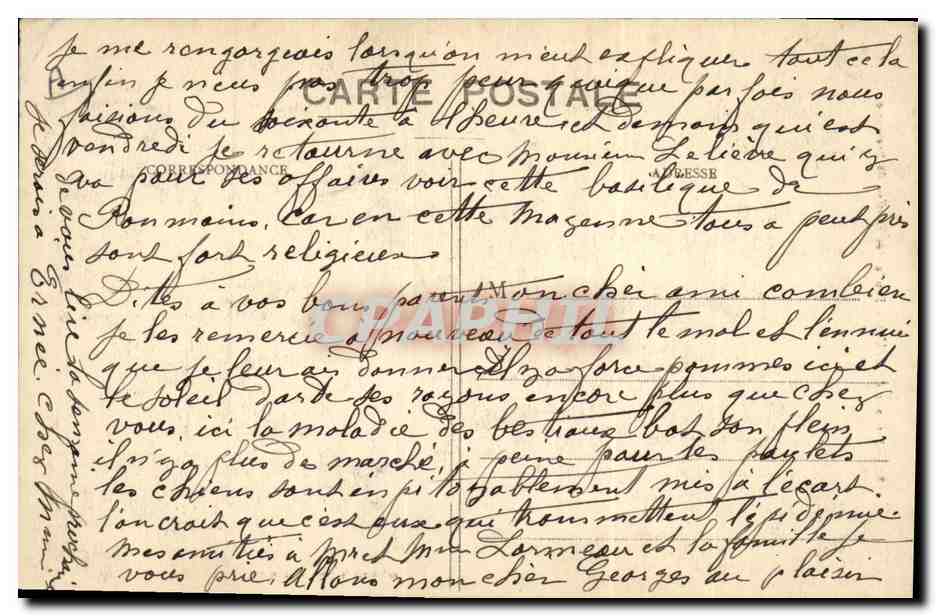 je me rengorgeais lorsqu'on m'eut expliquer tout cela
enfin je n'eus pas trop peur quoique parfois nous
CARTE POSTALE
faisions du soixante à l'heure et demain qui est
vendredi je retourne avec Monsieur Lelièvre qui y
CORRESPONDANCE
ADRESSE
va pour ses affaires voir cette basilique de
Ponmains, car en cette Mayenne tous a peut près
sont fort religieux
Dites à vos bons parents Mon cher ami combien
M
je les remercie à nouveau de tout le mal et l'ennui
CPARAMA
que je leur ai donner Il y a force pommes ici et
le soleil darde ses rayons encore plus que chez
vous, ici la maladie des bestiaux bat son plein
il n'y a plus de marché, à peine pour les poulets
les chiens sont impitoyablement mis à l'écart.
l'on croit que c'est eux qui transmettent l'épidémie
Mes amitiés à Mr et Mme Lormeau et la famille je
vous prie. Allons mon cher Georges au plaisir
de vous lire la semaine prochaine
je serais à Ernée. chez